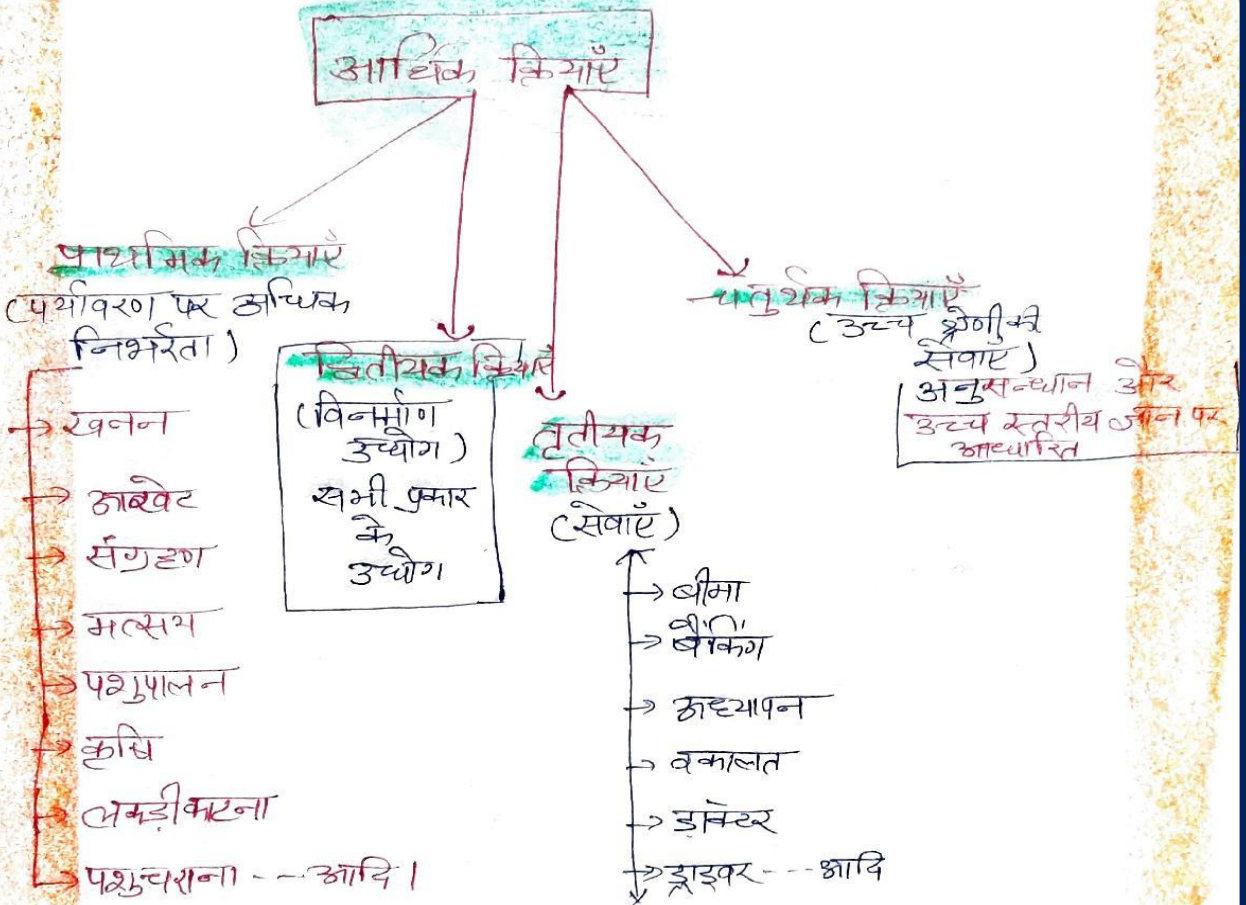 आर्थिक क्रियाएँ
प्राथमिक क्रियाएँ
(पर्यावरण पर अधिक
निर्भरता)
खनन
आखेट
संग्रहण
मत्सय
पशुपालन
कृषि
लकड़ी काटना
पशुचराना --- आदि।
द्वितीयक क्रियाएँ
(विनर्माण
उद्योग)
सभी प्रकार
के
उद्योग
तृतीयक
क्रियाएँ
(सेवाएँ)
बीमा
बैंकिंग
अध्यापन
वकालत
डॉक्टर
ड्राइवर --- आदि
चतुर्थक क्रियाएँ
(उच्च श्रेणी की
सेवाएँ)
अनुसन्धान और
उच्च स्तरीय ज्ञान पर
आध्यारित